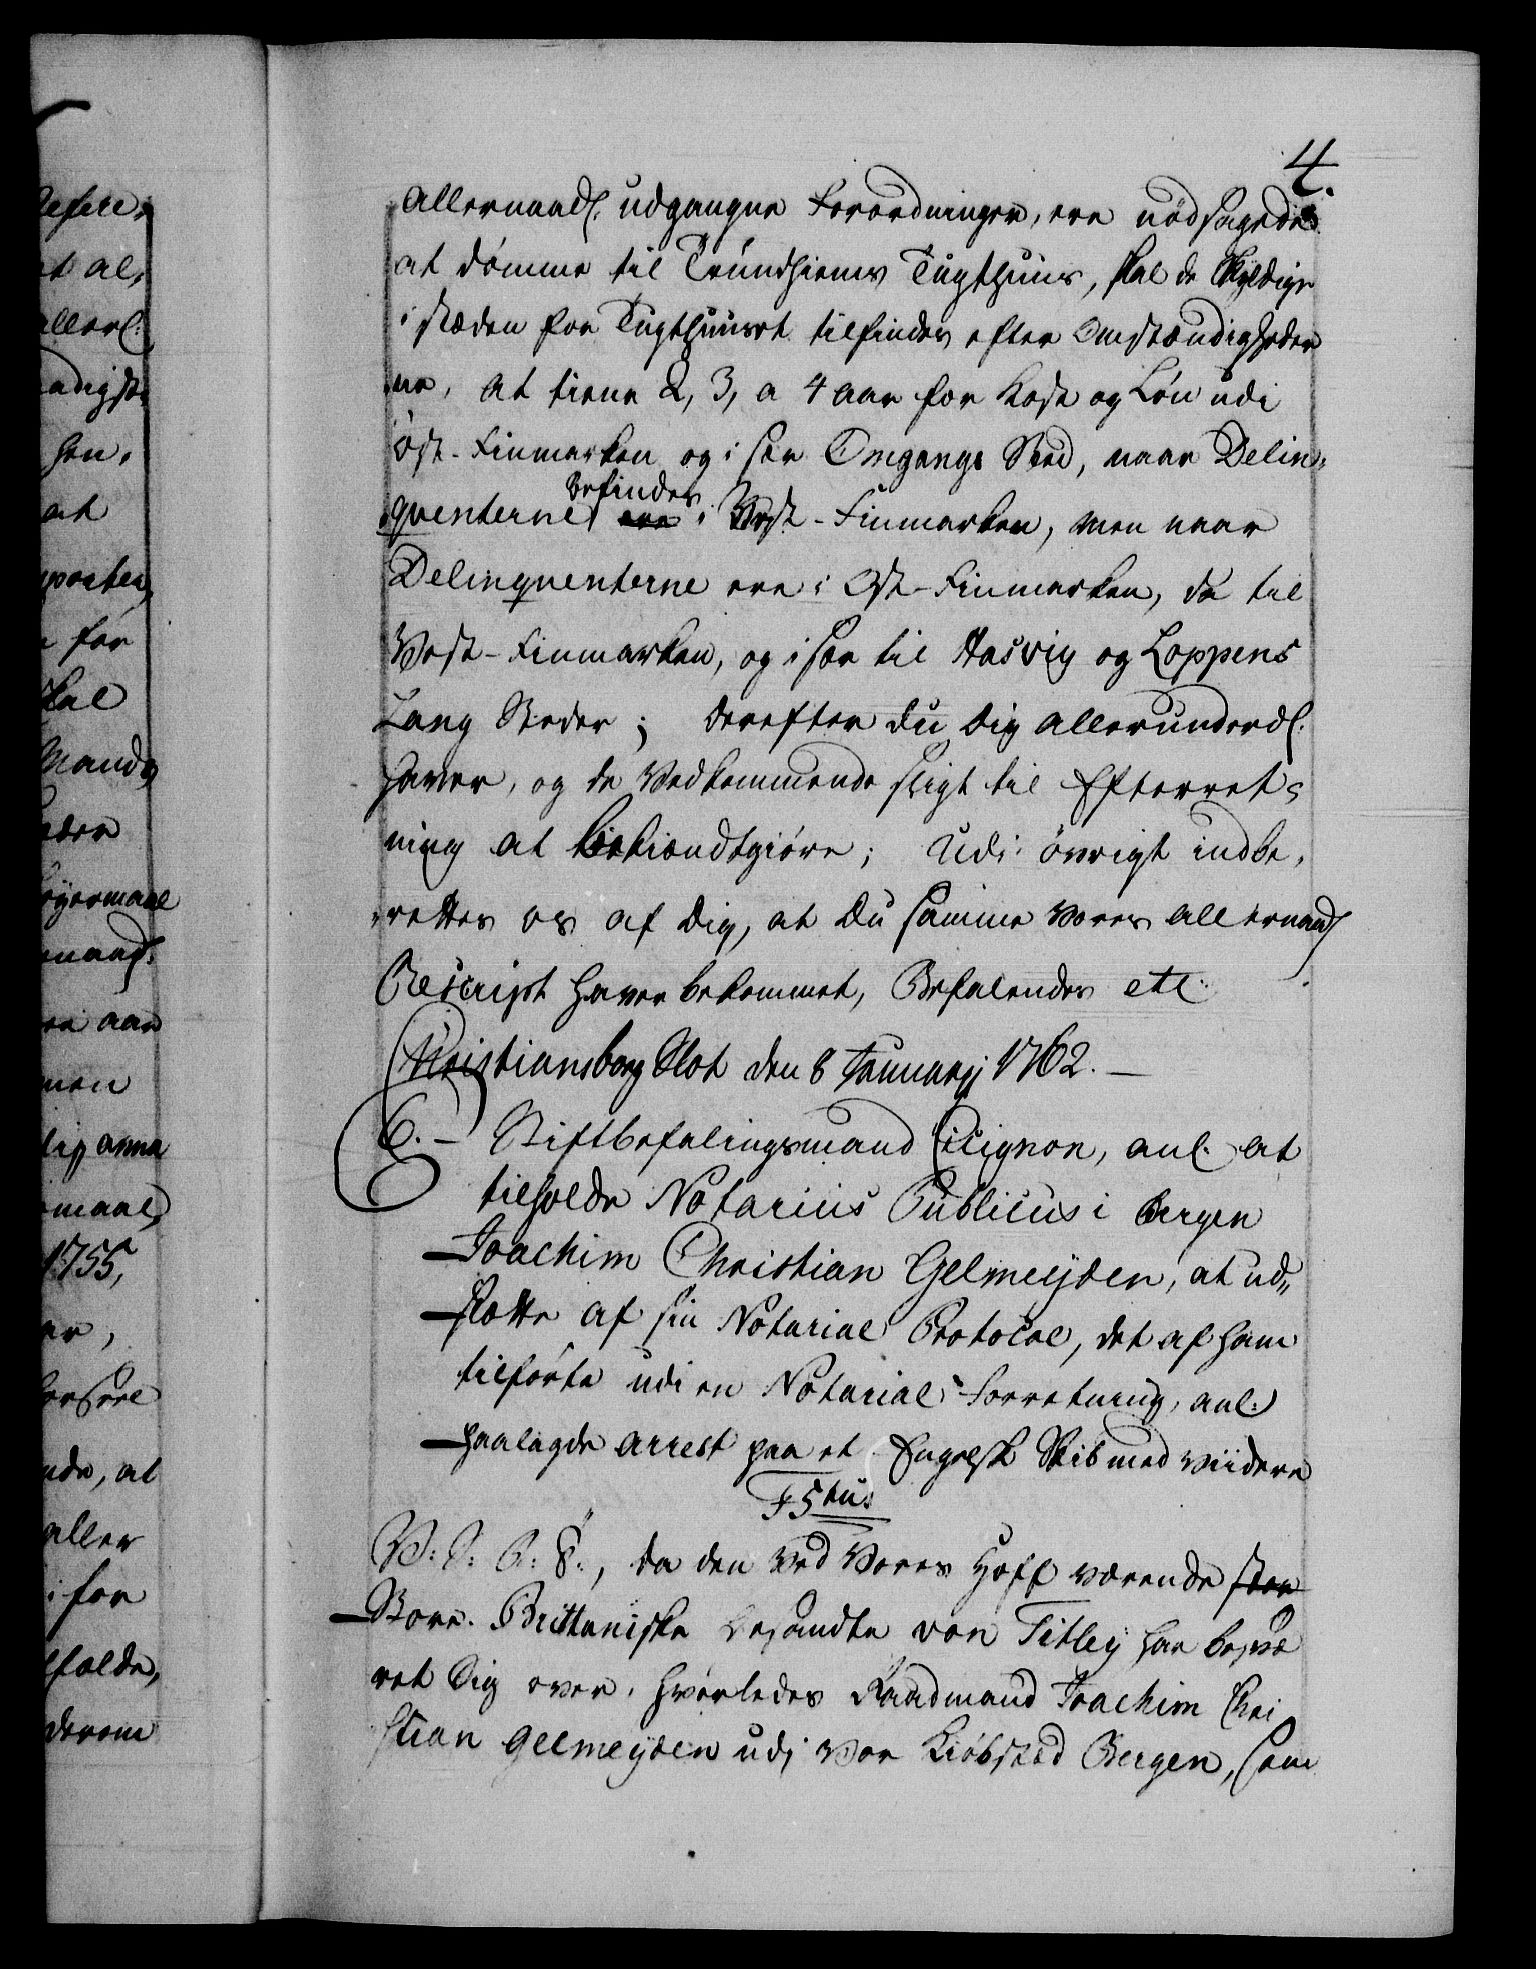 4.
allernaadl. udgangne Forordninger, ere nödsagede
at dömme til Trundhiems Tugthuus, skal de skyldige
i stæden for Tugthuuset tilfindes efter Omstændigheder
ne, at tiene 2, 3, a 4 aar for Kost og Lön udi
Öst-Finmarken og i sær Omgangs Sted, naar Delin¬
befindes
qventerne ere i Vest-Finmarken, men naar
Delinqventerne ere i Öst-Finmarken, da til
Vest-Finmarken, og i sær til Hasvig og Loppens
Lang Steder; derefter du dig allerunderdl.
haver, og de Vedkommende sligt til Efterret¬
ning at bekiendtgiöre; Udi övrigt indbe,
rettes os af dig, at du samme Vores allernaadl
Rescript haver bekommet, Befalendes etc.
Christiansborg Slot den 8 Januarij 1762.
6. Stiftbefalingsmand Cicignon, anl. at
tilholde Notarius Publicus i Bergen
Joachim Christian Gelmeyden, at ud„
slette af sin Notarial Protocol, det af ham
tilförte udi en Notarial-Forretning, anl:
paalagde arrest paa et Engelsk Skib med viidere
F 5tus
V: S: G: T:, da den ved Vores Hoff værende stor
Store. Brittaniske Gesandte von Titley har besvæ
ret Sig over, hvorledes Raadmand Joachim Chri
stian Gelmeyden udj Vor Kiöbsted Bergen, som
efter,
et al,
allerl:
aadigst,
hen,
at
porter,
for
skal
Mands
eder
eyermaal
naadl.
ere aar
men
lig arma
maal,
1755,
er,
nde, at
aller
i for
folde,
derom